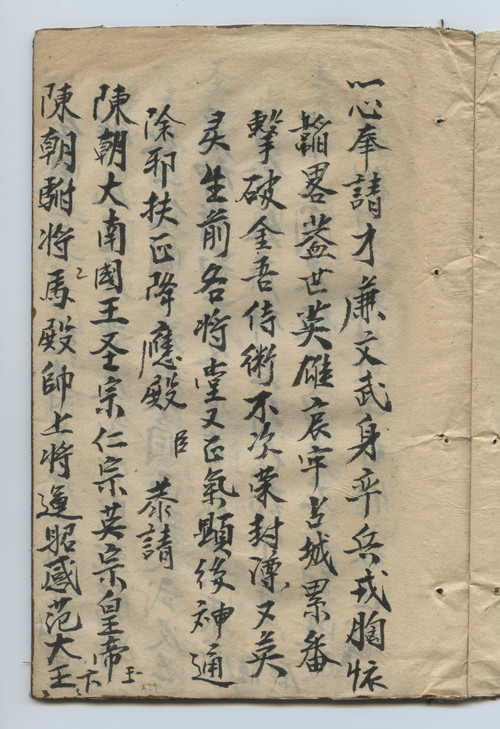 一心奉請才廉文武身卒兵戎胸懷
韜畧蓋世英雄哀牢占城累番
擊破金吾侍衛不次荣封漂又英
灵生前各將堂又正氣顯後神通
除邪扶正降應殿臣恭請
陳朝大南國王圣宗仁宗英宗皇帝陛下
陳朝駙將馬殿帥上將逥昭感范大王